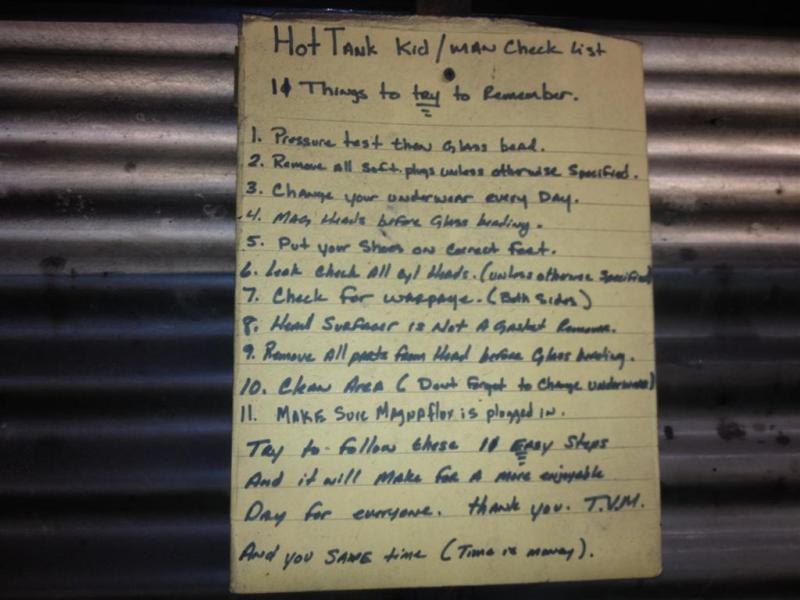 Hot Tank Kid/MAN Check list
11 Things to try to Remember.
1. Pressure test then Glass bead.
2. Remove all soft plugs unless otherwise Specified.
3. Change your underwear every Day.
4. MAG Heads before Glass beading.
5. Put your Shoes on correct feet.
6. Leak Check All cyl Heads. (unless otherwise Specified)
7. Check for warpage. (Both Sides)
8. Head Surfacer is Not A Gasket Remover.
9. Remove All parts from Head before Glass beading.
10. Clean Area (Don't Forget to Change underwear)
11. MAKE Sure Magnaflux is plugged in.
Try to follow these 11 Easy Steps
And it will Make for A more enjoyable
Day for everyone. thank you. T.V.M.
And you SAME time (Time is money).